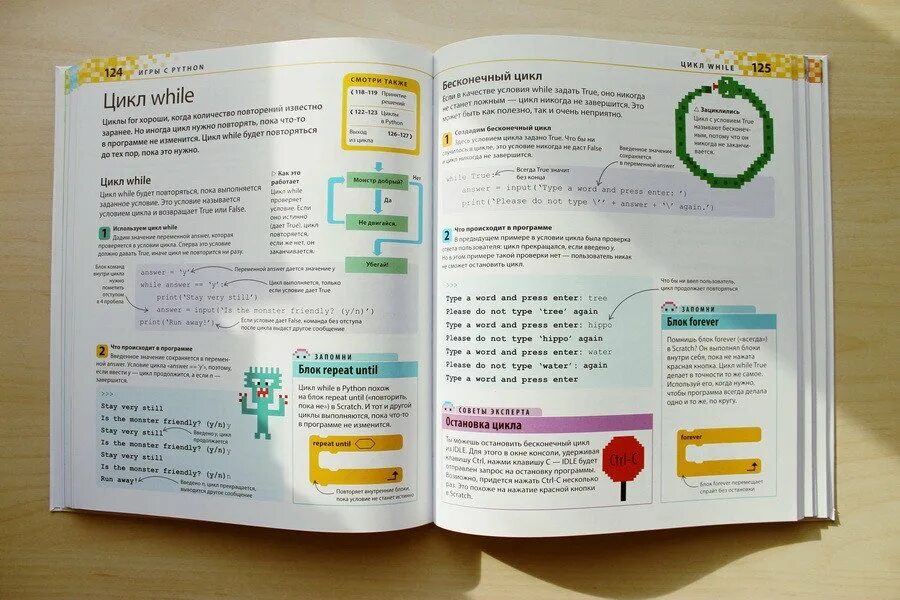 124 ИГРЫ С PYTHON
Цикл while
Циклы for хороши, когда количество повторений известно
заранее. Но иногда цикл нужно повторять, пока что-то
в программе не изменится. Цикл while будет повторяться
до тех пор, пока это нужно.
СМОТРИ ТАКЖЕ
‹ 118–119 Принятие
решений
‹ 122–123 Циклы
в Python
Выход 126–127 ›
из цикла
Цикл while
Цикл while будет повторяться, пока выполняется
заданное условие. Это условие называется
условием цикла и возвращает True или False.
▷ Как это
работает
Цикл while
проверяет
условие. Если
оно истинно
(дает True), цикл
повторяется,
если же нет, он
заканчивается.
Монстр добрый?
Нет
Да
Не двигайся.
Убегай!
1 Используем цикл while
Дадим значение переменной answer, которая
проверяется в условии цикла. Сперва это условие
должно давать True, иначе цикл не повторится ни разу.
Блок команд
внутри цикла
нужно
пометить
отступом
в 4 пробела
answer = 'y'
while answer == 'y':
print('Stay very still')
answer = input('Is the monster friendly? (y/n)')
print('Run away!')
Переменной answer дается значение y
Цикл выполняется, только
если условие дает True
Если условие дает False, команда без отступа
после цикла выдаст другое сообщение
2 Что происходит в программе
Введенное значение сохраняется в перемен-
ной answer. Условие цикла «answer == 'y'», поэтому,
если ввести y — цикл продолжается, а если n —
завершится.
>>>
Stay very still
Is the monster friendly? (y/n)y
Stay very still
Is the monster friendly? (y/n)y
Stay very still
Is the monster friendly? (y/n)n
Run away!
Введено y, цикл
продолжается
Введено n, цикл прекращается,
выводится другое сообщение
ЗАПОМНИ
Блок repeat until
Цикл while в Python похож
на блок repeat until («повторить,
пока не») в Scratch. И тот и другой
циклы выполняются, пока что-то
в программе не изменится.
repeat until
Повторяет внутренние блоки,
пока условие не станет истинно
ЦИКЛ WHILE 125
Бесконечный цикл
Если в качестве условия while задать True, оно никогда
не станет ложным — цикл никогда не завершится. Это
может быть как полезно, так и очень неприятно.
△ Зациклились
Цикл с условием True
называют бесконеч-
ным, потому что он
никогда не заканчи-
вается.
1 Создадим бесконечный цикл
Здесь условием цикла задано True. Что бы ни
случилось в цикле, это условие никогда не даст False
и цикл никогда не завершится.
Введенное значение
сохраняется
в переменной answer
Всегда True значит
без конца
while True:
answer = input('Type a word and press enter: ')
print('Please do not type \'' + answer + '\' again.')
2 Что происходит в программе
В предыдущем примере в условии цикла была проверка
ответа пользователя: цикл прекращался, если введено n.
Но в этом примере такой проверки нет — пользователь никак
не сможет остановить цикл.
Что бы ни ввел пользователь,
цикл продолжает повторяться
>>>
Type a word and press enter: tree
Please do not type 'tree' again
Type a word and press enter: hippo
Please do not type 'hippo' again
Type a word and press enter: water
Please do not type 'water': again
Type a word and press enter
ЗАПОМНИ
Блок forever
Помнишь блок forever («всегда»)
в Scratch? Он выполнял блоки
внутри себя, пока не нажата
красная кнопка. Цикл while True
делает в точности то же самое.
Используй его, когда нужно,
чтобы программа всегда делала
одно и то же, по кругу.
forever
Блок forever перемещает
спрайт без остановки
СОВЕТЫ ЭКСПЕРТА
Остановка цикла
Ты можешь остановить бесконечный цикл
из IDLE. Для этого в окне консоли, удерживая
клавишу Ctrl, нажми клавишу C — IDLE будет
отправлен запрос на остановку программы.
Возможно, придется нажать Ctrl-C несколько
раз. Это похоже на нажатие красной кнопки
в Scratch.
Ctrl-C